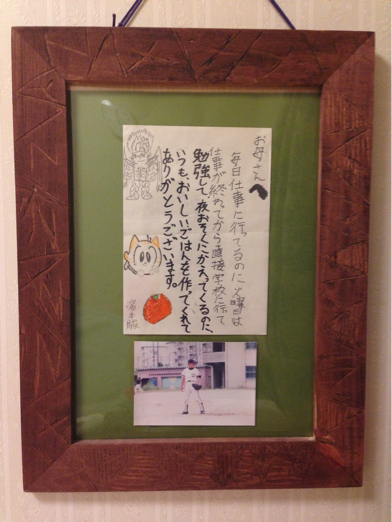 お母さんへ
毎日仕事に行ってるのに火曜は
仕事が終わってから直接学校に行って
勉強して、夜おそくにかえってくるのに、
いつも、おいしいごはんを作ってくれて
ありがとうございます。